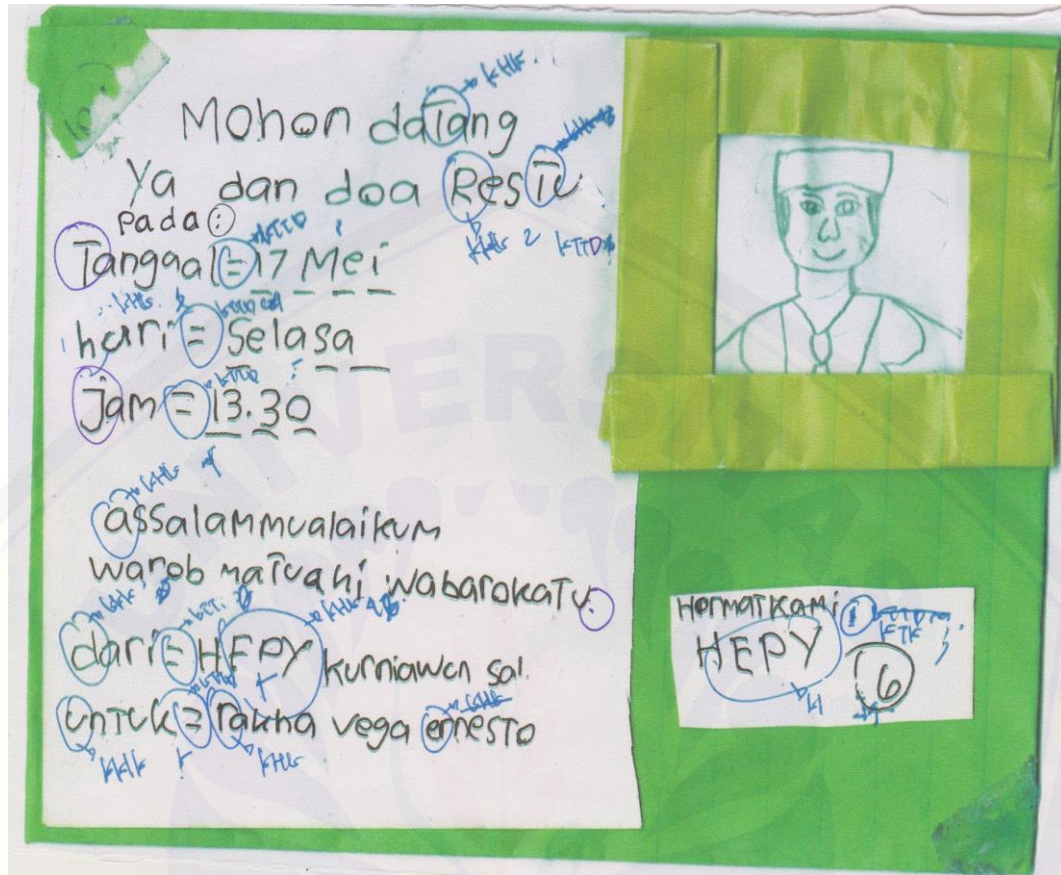 Mohon daTang
Ya dan doa ResTu
pada :
Tanggal = 17 Mei
hari = Selasa
Jam = 13.30
assalammualaikum
warob maTuahi wabarokaTu.
dari = HEPY kurniawan sal.
unTuk = rakha vega ernesTo
HormaT kami
HEPY
6
KHK
KHK
KTTD
KHK
KTTD
KHK
KHK
KHK
KHK
KTK
UNIVERSITA